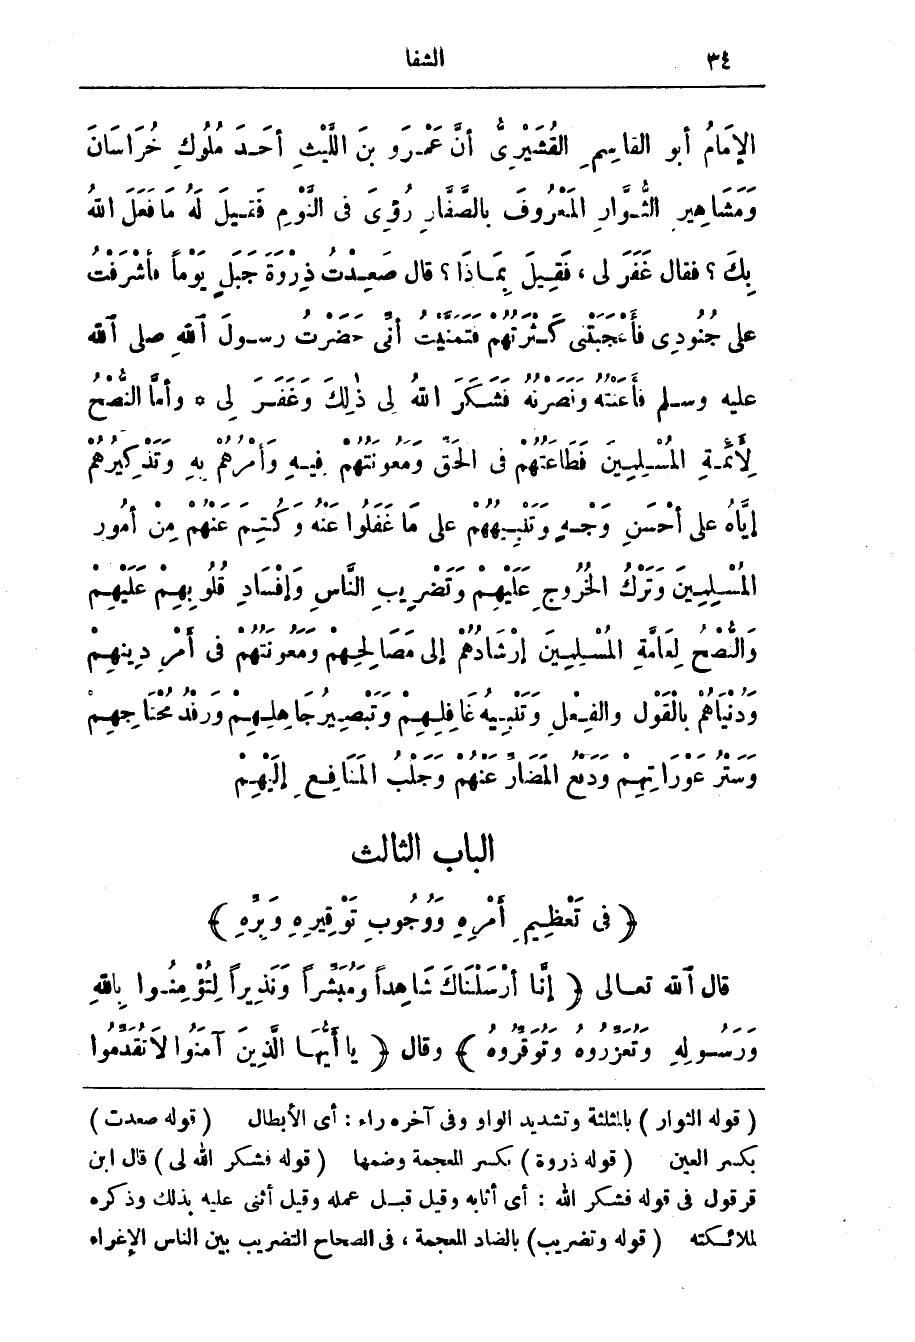 ٣٤ الشفا
الإمَامُ أبو القاسِمِ القُشَيْرِىُّ أنَّ عَمْرَو بنَ اللَّيْثِ أحَدَ مُلُوكِ خُرَاسَانَ
وَمَشَاهِيرِ الثُّوَّارِ المَعْرُوفَ بالصَّفَّارِ رُؤِىَ فى النَّوْمِ فَقِيلَ لَهُ مَا فَعَلَ اللهُ
بِكَ ؟ فقال غَفَرَ لى ، فَقِيلَ بِمَاذَا ؟ قال صَعِدْتُ ذِرْوَةَ جَبَلٍ يَوْماً فأشْرَفْتُ
على جُنُودِى فَأَعْجَبَتْنِى كَثْرَتُهُمْ فَتَمَنَّيْتُ أنِّى حَضَرْتُ رسولَ اللهِ صلى الله
عليه وسلم فأعَنْتُهُ وَنَصَرْتُهُ فَشَكَرَ اللهُ لى ذٰلِكَ وَغَفَرَ لِى * وأما النُّصْحُ
لِأَئِمَّةِ المُسْلِمِينَ فَطَاعَتُهُمْ فى الحَقِّ وَمَعُونَتُهُمْ فِيهِ وَأمْرُهُمْ بِهِ وَتَذْكِيرُهُمْ
إيَّاهُ على أحْسَنِ وَجْهٍ وَتَنْبِيهُهُمْ على مَا غَفَلُوا عَنْهُ وَكُتِمَ عَنْهُمْ مِنْ أمُورِ
المُسْلِمِينَ وَتَرْكُ الخُرُوجِ عَلَيْهِمْ وَتَضْرِيبِ النَّاسِ وَإفْسَادِ قُلُوبِهِمْ عَلَيْهِمْ
وَالنُّصْحُ لِعَامَّةِ المُسْلِمِينَ إرْشَادُهُمْ إلى مَصَالِحِهِمْ وَمَعُونَتُهُمْ فى أَمْرِ دِينِهِمْ
وَدُنْيَاهُمْ بالْقَوْلِ والفِعْلِ وَتَنْبِيهُ غَافِلِهِمْ وَتَبْصِيرُ جَاهِلِهِمْ وَرَفْدُ مُحْتَاجِهِمْ
وَسَتْرُ عَوْرَاتِهِمْ وَدَفْعُ المَضَارِّ عَنْهُمْ وَجَلْبُ المَنَافِعِ إلَيْهِمْ
الباب الثالث
﴿ فى تَعْظِيمِ أَمْرِهِ وَوُجُوبِ تَوْقِيرِهِ وَبِرِّهِ ﴾
قال الله تعالى ﴿ إنَّا أرْسَلْنَاكَ شَاهِداً وَمُبَشِّراً وَنَذِيراً لِتُؤْمِنُوا بِاللهِ
وَرَسُولِهِ وَتُعَزِّرُوهُ وَتُوَقِّرُوهُ ﴾ وقال ﴿ يا أَيُّهَا الَّذِينَ آمَنُوا لا تُقَدِّمُوا
( قوله الثوار ) بالمثلثة وتشديد الواو وفى آخره راء : أى الأبطال ( قوله صعدت )
بكسر العين ( قوله ذروة ) بكسر المعجمة وضمها ( قوله فشكر الله لى ) قال ابن
قرقول فى قوله فشكر الله : أى أثابه وقيل قبل عمله وقيل أثنى عليه بذلك وذكره
لملائكته ( قوله وتضريب ) بالضاد المعجمة ، فى الصحاح التضريب بين الناس الإغراء